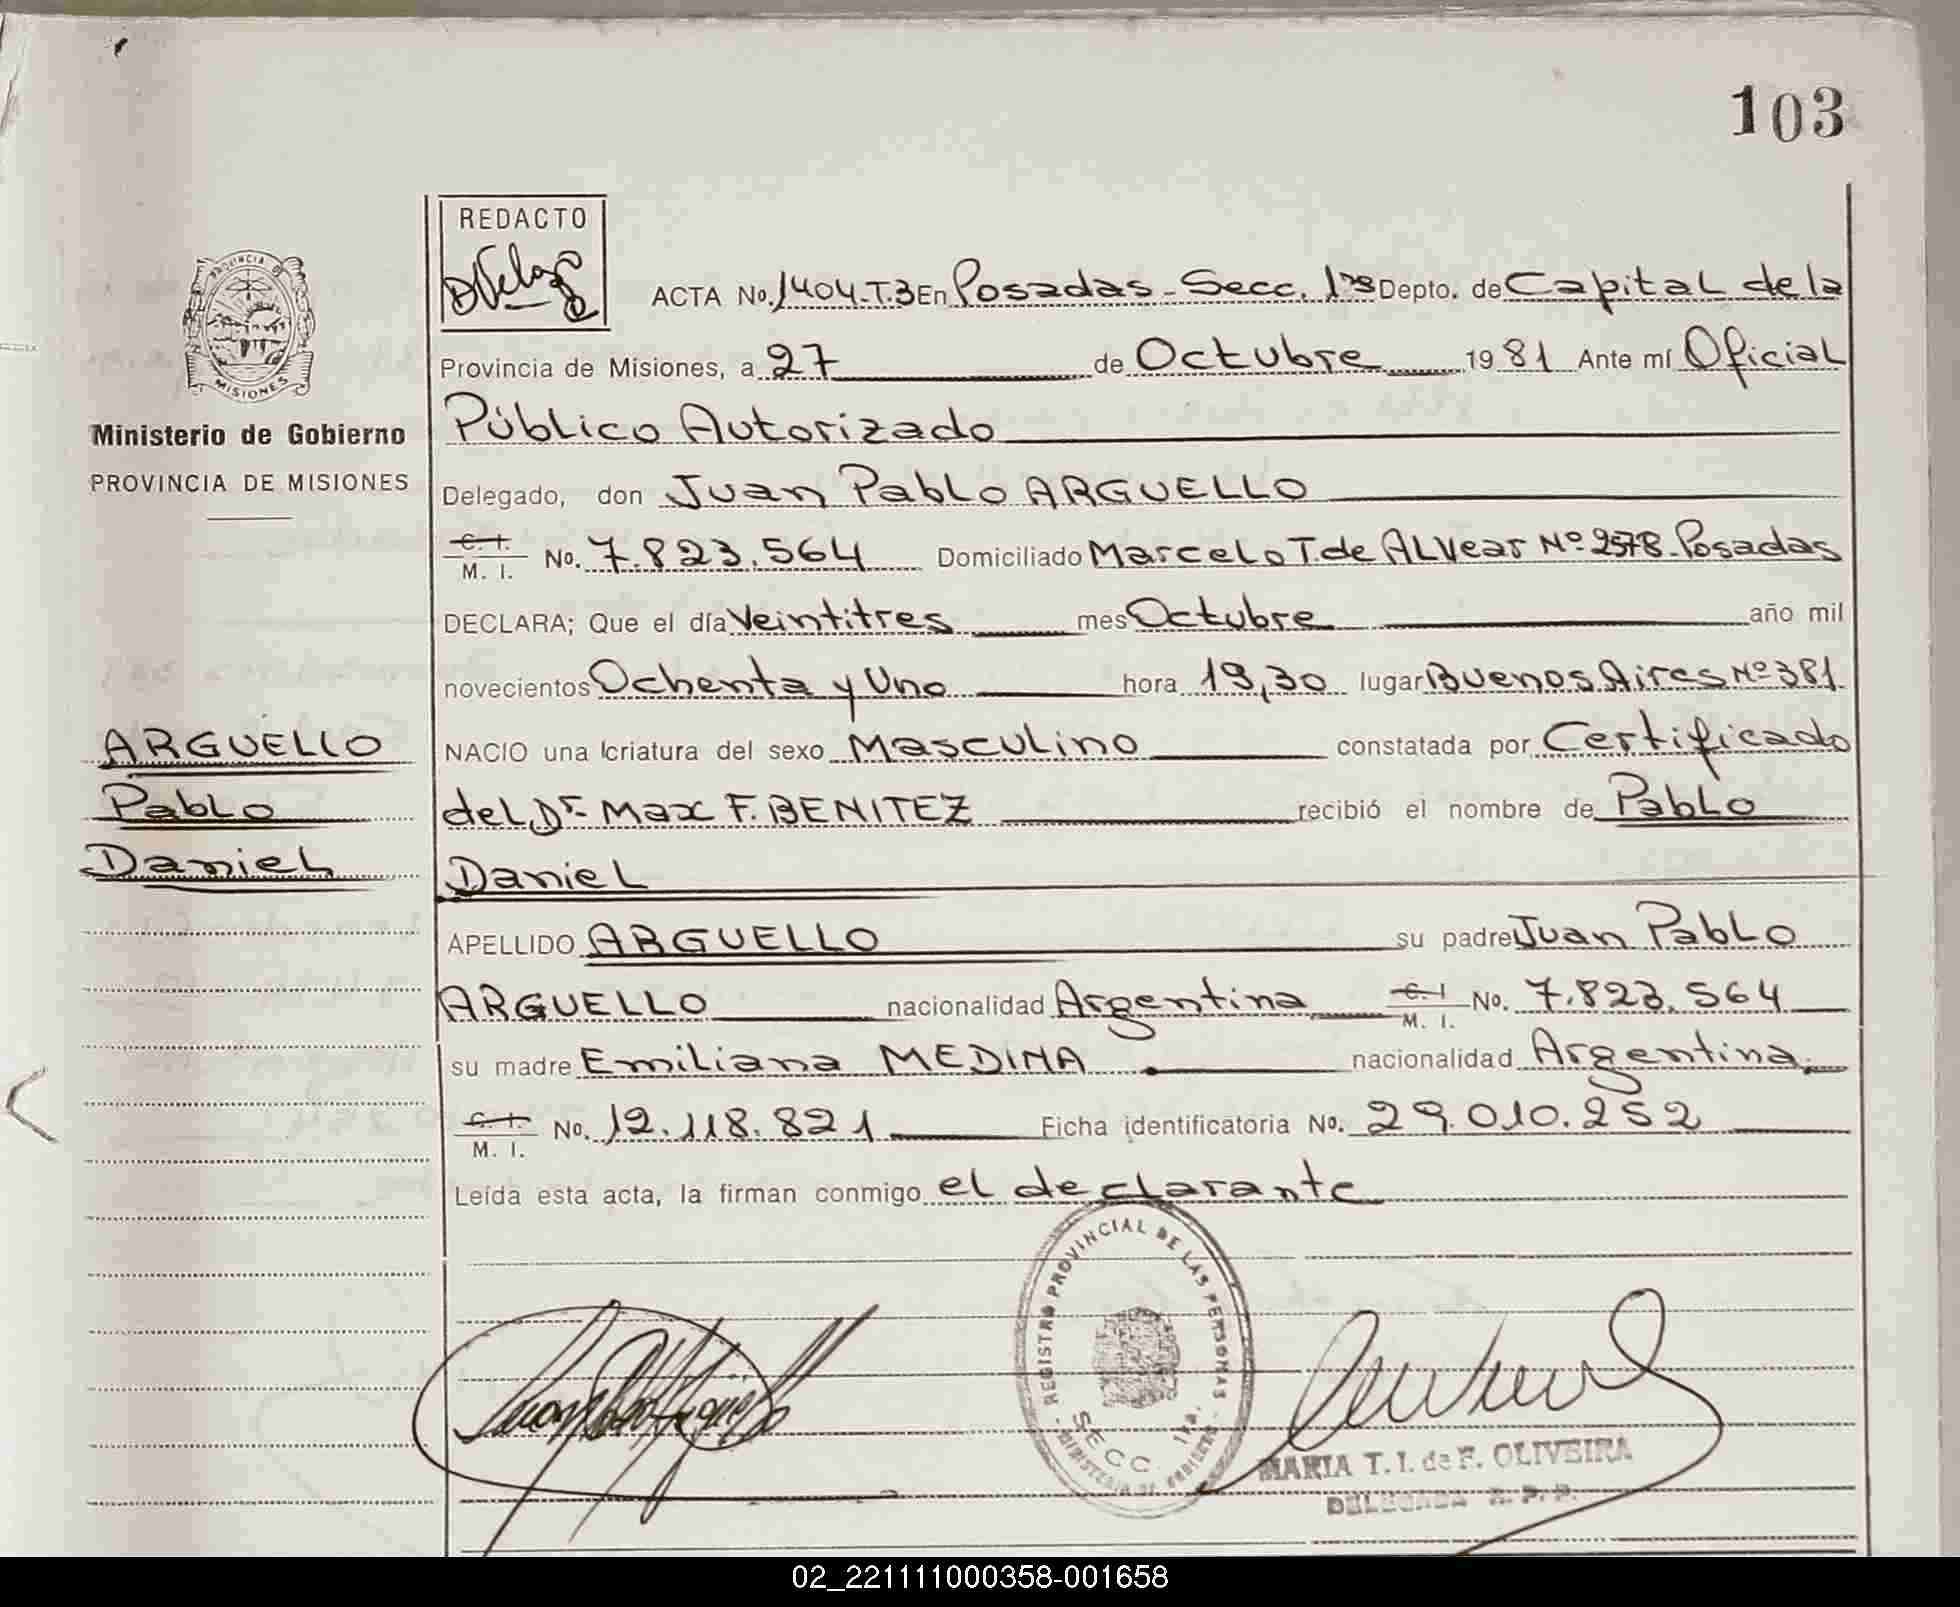 103
REDACTO
DVelaz
PROVINCIA DE
MISIONES
Ministerio de Gobierno
PROVINCIA DE MISIONES
ACTA No. 1404-T.3 En Posadas - Secc. 1ra Depto. de Capital de la
Provincia de Misiones, a 27 de Octubre 1981 Ante mí Oficial
Público Autorizado
Delegado, don Juan Pablo ARGUELLO
C. I.
M. I. No. 7.823.564 Domiciliado Marcelo T. de ALVear Nº 2578-Posadas
DECLARA; Que el día Veintitres mes Octubre año mil
novecientos Ochenta y Uno hora 19,30 lugar Buenos Aires Nº 381
NACIO una criatura del sexo Masculino constatada por Certificado
del Dr. Max F. BENITEZ recibió el nombre de Pablo
Daniel
ARGUELLO
Pablo
Daniel
APELLIDO ARGUELLO su padre Juan Pablo
ARGUELLO nacionalidad Argentina C. I.
M. I. No. 7.823.564
su madre Emiliana MEDINA nacionalidad Argentina
C. I.
M. I. No. 12.118.821 Ficha identificatoria No. 29.010.252
Leída esta acta, la firman conmigo el declarante
REGISTRO PROVINCIAL DE LAS PERSONAS
SECC. 1ra.
MINISTERIO DE GOBIERNO
MARIA T. I. de F. OLIVEIRA
DELEGADA R. P. P.
02_221111000358-001658